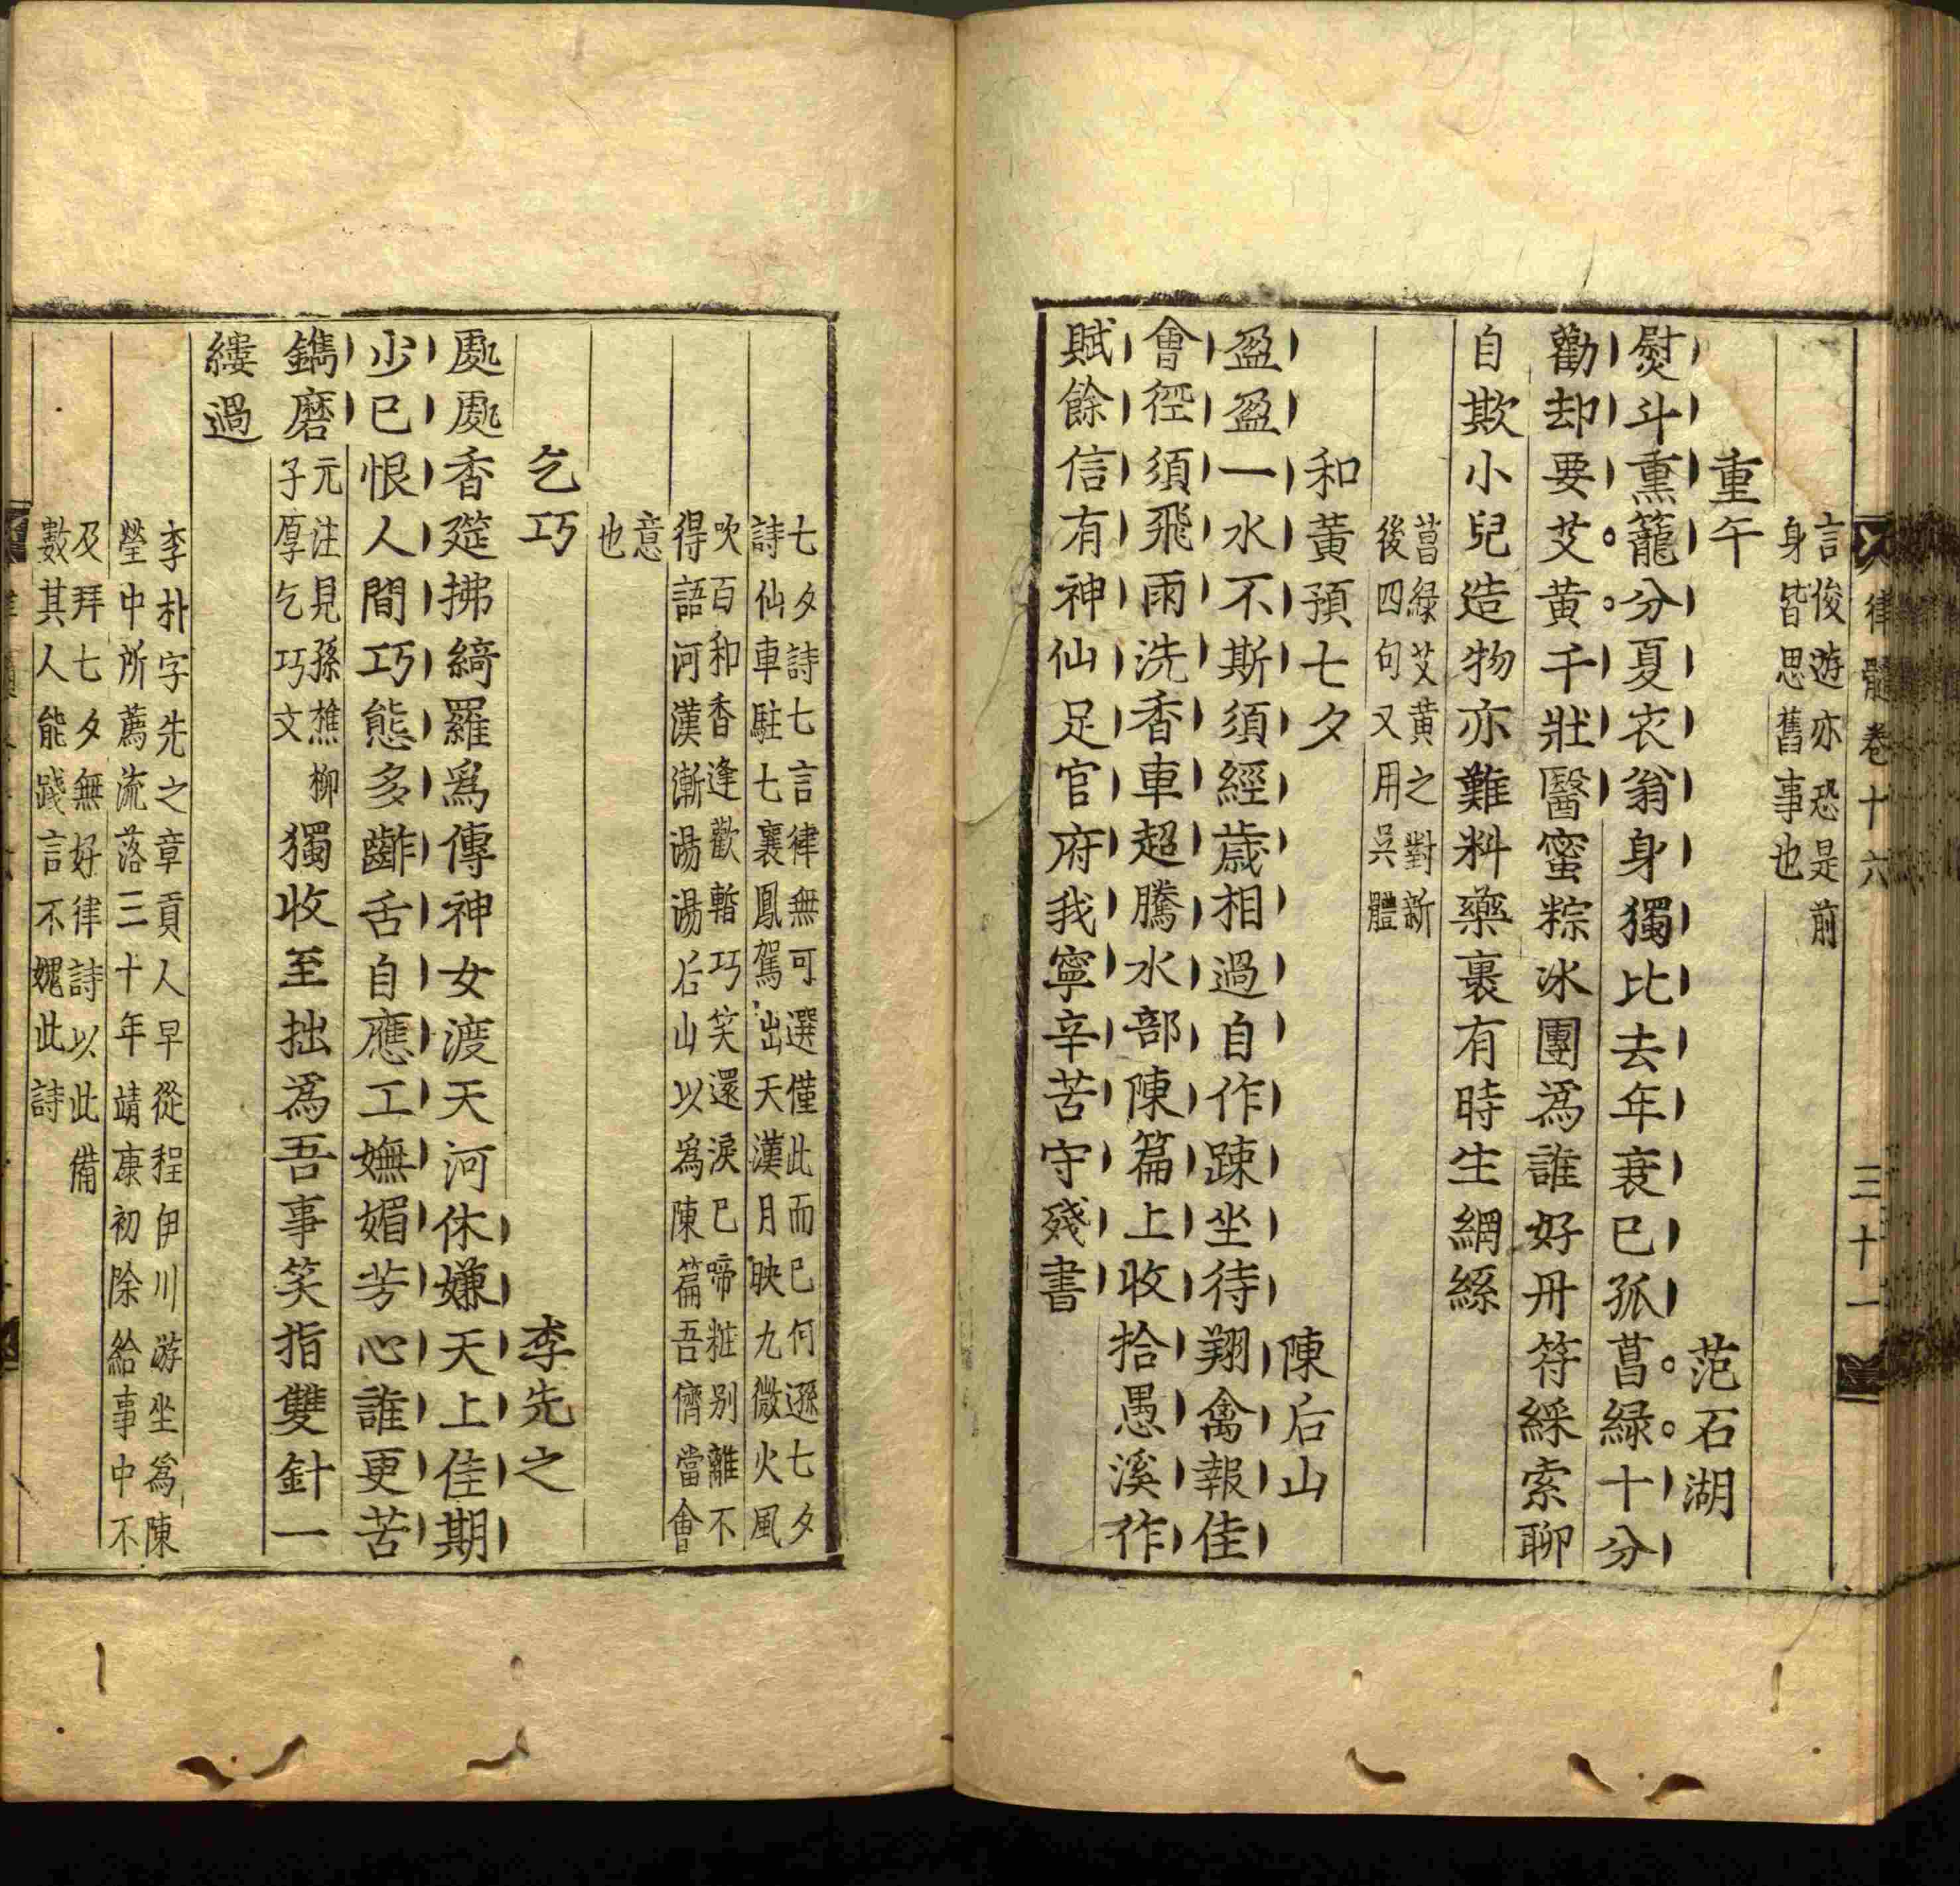 律髓卷十六 三十一
言俊遊亦恐是前
身皆思舊事也
重午 范石湖
熨斗熏籠分夏衣翁身獨比去年衰巳孤菖綠十分
勸却要艾黃千壯醫蜜粽冰團爲誰好丹符綵索聊
自欺小兒造物亦難料藥裹有時生網絲
菖綠艾黃之對新
後四句又用吳體
和黃預七夕 陳后山
盈盈一水不斯須經歲相過自作踈坐待翔禽報佳
會徑須飛雨洗香車超騰水部陳篇上收拾愚溪作
賦餘信有神仙足官府我寧辛苦守殘書
七夕詩七言律無可選僅此而巳何遜七夕
詩仙車駐七襄鳳駕出天漢月映九微火風
吹百和香逢歡暫巧笑還淚巳啼粧别離不
得語河漢漸湯湯后山以爲陳篇吾儕當會
意
也
乞巧 李先之
處處香筵拂綺羅爲傳神女渡天河休嫌天上佳期
少巳恨人間巧態多齰舌自應工嫵媚芳心誰更苦
鐫磨
元注見孫樵柳
子厚乞巧文
獨收至拙爲吾事笑指雙針一
縷過
李朴字先之章貢人早從程伊川游坐爲陳
瑩中所薦流落三十年靖康初除給事中不
及拜七夕無好律詩以此備
數其人能踐言不媿此詩